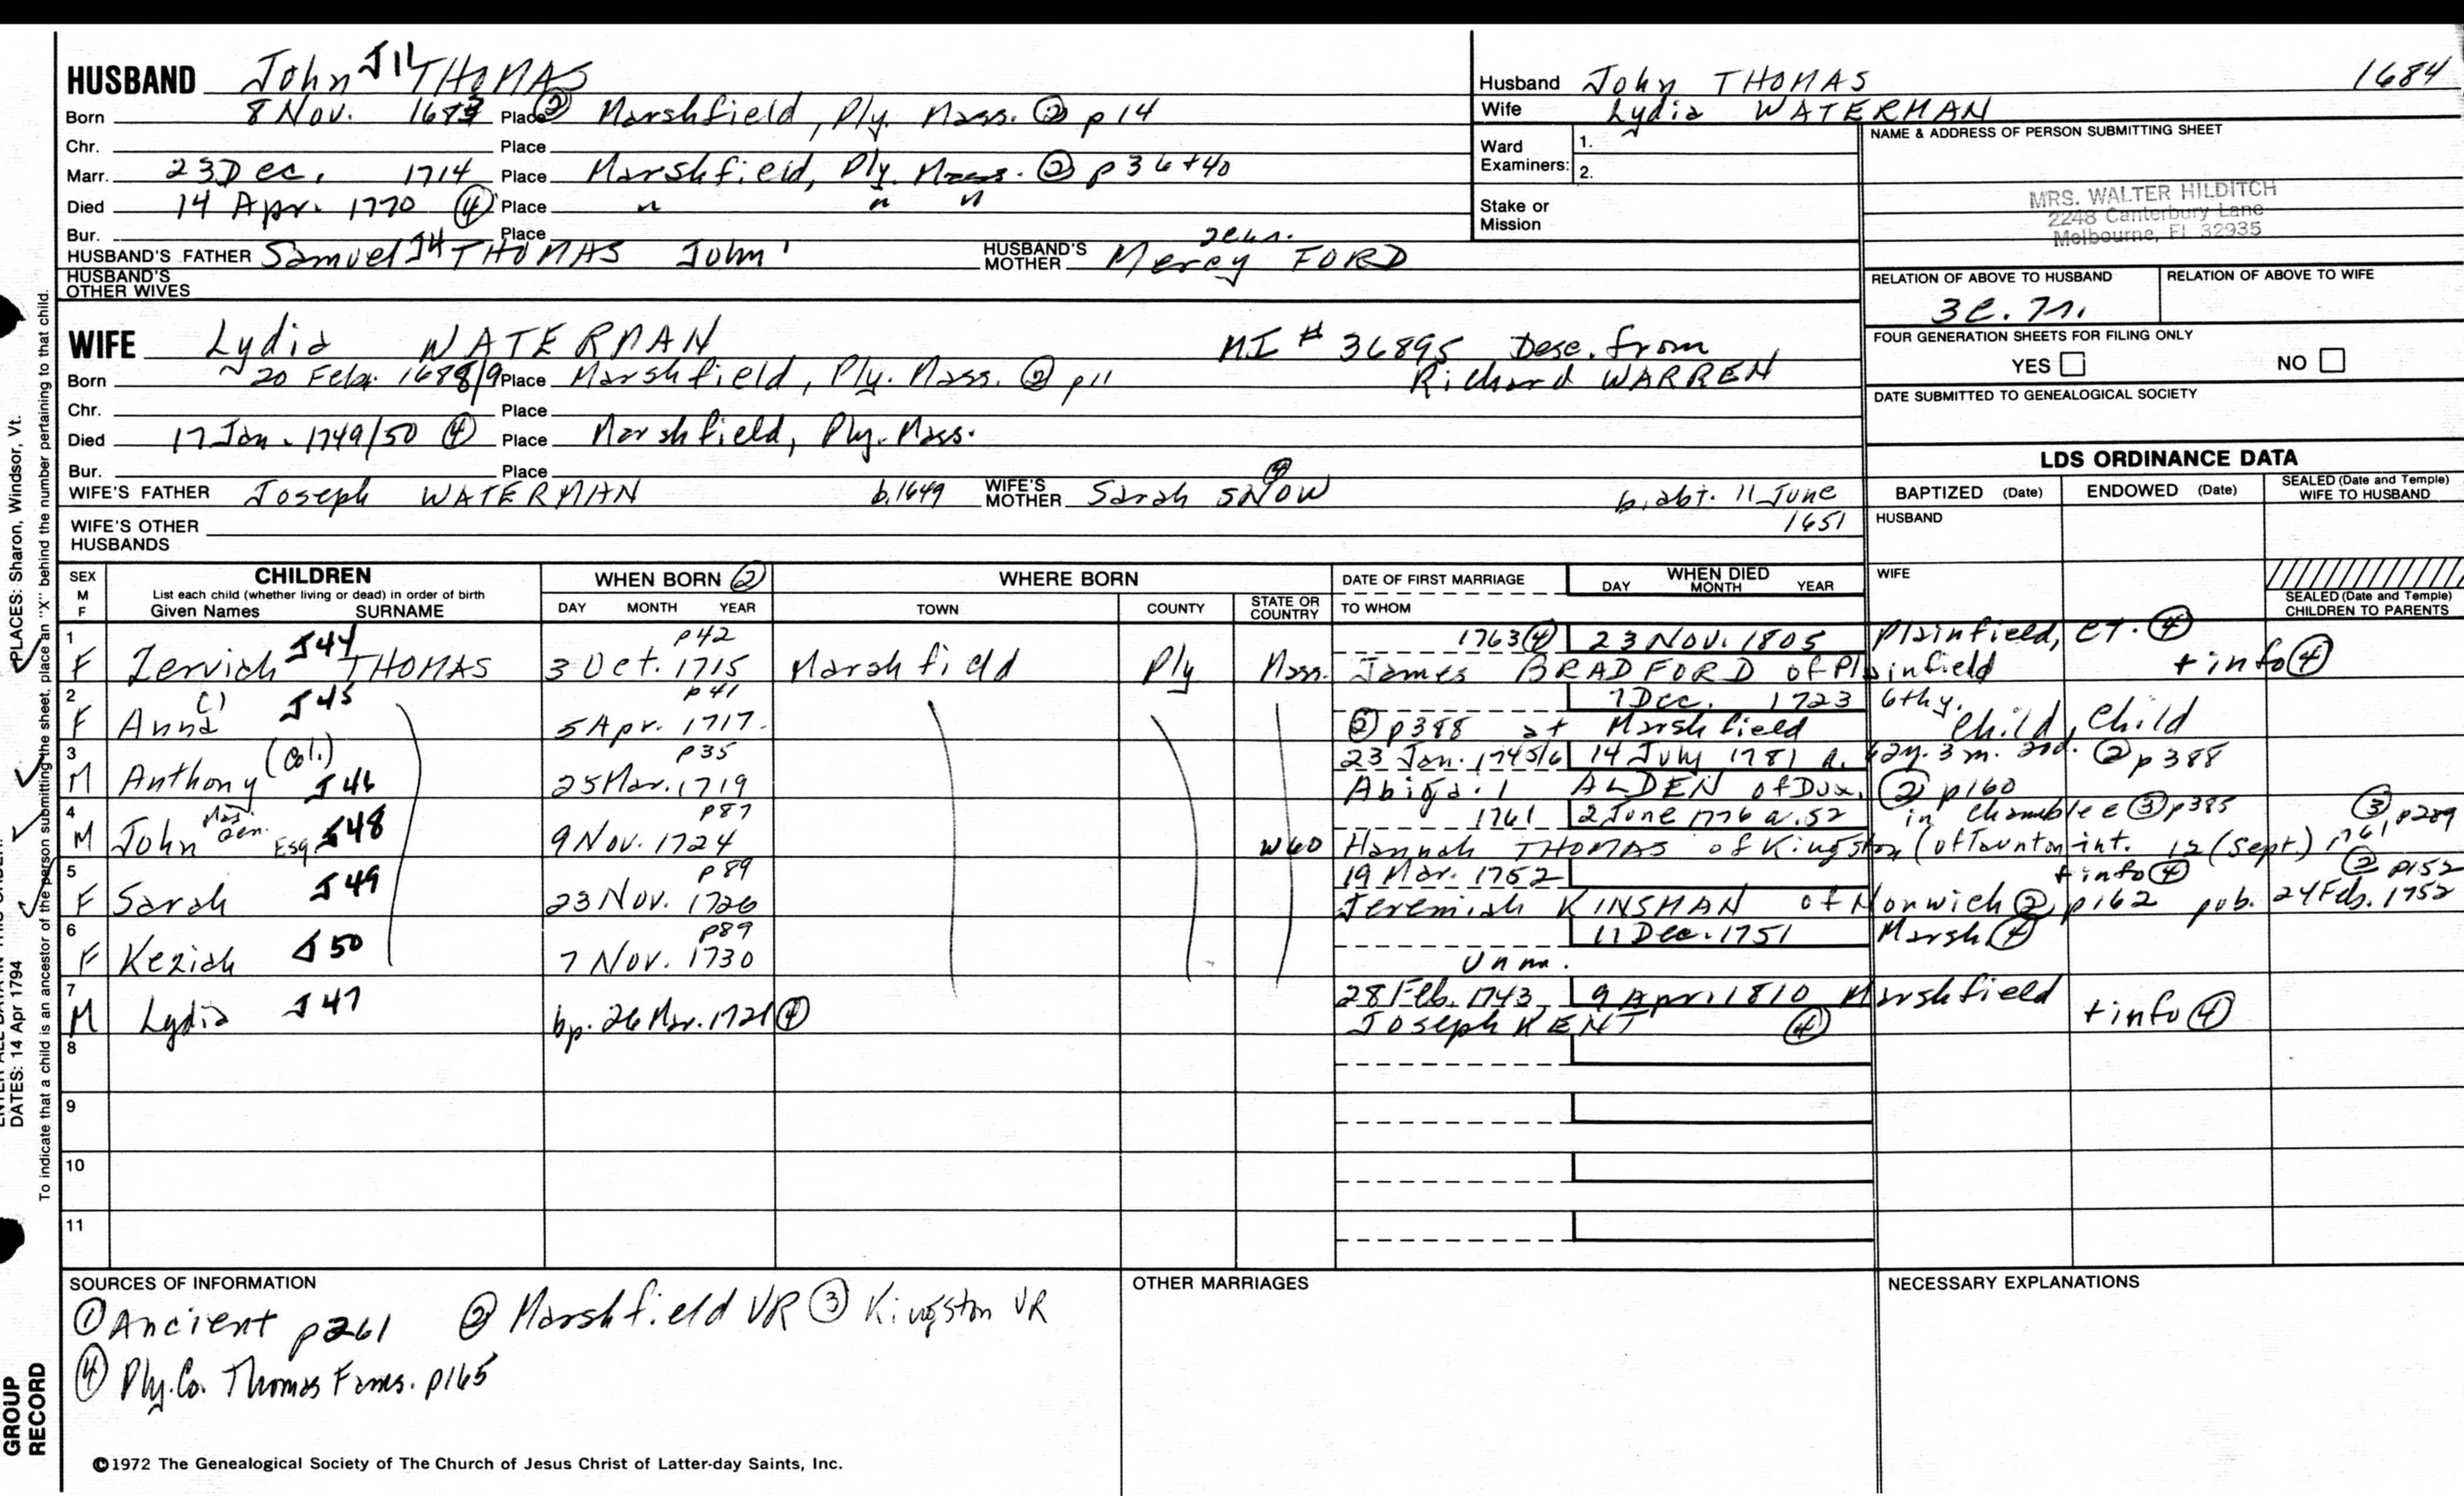 HUSBAND John J11 THOMAS
Born 8 Nov. 1683 Place ② Marshfield, Ply. Mass. ② p14
Chr. Place
Marr. 23 Dec. 1714 Place Marshfield, Ply. Mass. ② p36+40
Died 14 Apr. 1770 ④ Place " " "
Bur. Place
HUSBAND'S FATHER Samuel J4 THOMAS John'
HUSBAND'S MOTHER Mercy FORD
HUSBAND'S OTHER WIVES
Husband John THOMAS 1684
Wife Lydia WATERMAN
Ward Examiners: 1.
2.
Stake or Mission
NAME & ADDRESS OF PERSON SUBMITTING SHEET
MRS. WALTER HILDITCH
2248 Canterbury Lane
Melbourne, Fl 32935
RELATION OF ABOVE TO HUSBAND
RELATION OF ABOVE TO WIFE
FOUR GENERATION SHEETS FOR FILING ONLY
YES NO
DATE SUBMITTED TO GENEALOGICAL SOCIETY
WIFE Lydia WATERMAN MI # 36895 Desc. from
Richard WARREN
Born 20 Feb. 1688/9 Place Marshfield, Ply. Mass. ② p11
Chr. Place
Died 17 Jan. 1749/50 ④ Place Marshfield, Ply. Mass.
Bur. Place
WIFE'S FATHER Joseph WATERMAN b.1649
WIFE'S MOTHER Sarah SNOW ④ b. abt. 11 June
1651
WIFE'S OTHER HUSBANDS
LDS ORDINANCE DATA
BAPTIZED (Date) ENDOWED (Date) SEALED (Date and Temple) WIFE TO HUSBAND
HUSBAND
WIFE
SEALED (Date and Temple) CHILDREN TO PARENTS
SEX M F
CHILDREN
List each child (whether living or dead) in order of birth
Given Names SURNAME
WHEN BORN ②
DAY MONTH YEAR
WHERE BORN
TOWN COUNTY STATE OR COUNTRY
DATE OF FIRST MARRIAGE
TO WHOM
WHEN DIED
DAY MONTH YEAR
1 p42 1763 ④ 23 Nov. 1805 Plainfield, CT. ④
F Zerviah J44 THOMAS 3 Oct. 1715 Marshfield Ply Mass. James BRADFORD of Plainfield + info ④
2 p41 7 Dec. 1723 6thy.
F Anna J45 5 Apr. 1717 ② p388 at Marshfield Child, Child
3 (Col.) p35 23 Jan. 1745/6 14 July 1781 a. 62y. 3 m. ② p388
M Anthony J46 25 Mar. 1719 Abigail ALDEN of Dux. ② p160
4 p87 1761 2 June 1776 a. 52 in Chamblee ③ p385 ③ p289
M John Maj. Gen. Esq. J48 9 Nov. 1724 W60 Hannah THOMAS of Kingston (of Taunton int. 12 (Sept.) 1761
5 p89 19 Mar. 1752 + info ④ ② p152
F Sarah J49 23 Nov. 1726 Jeremiah KINSMAN of Norwich ② p162 pub. 24 Feb. 1752
6 p89 11 Dec. 1751 Marsh ④
F Keziah J50 7 Nov. 1730 Unm.
7 28 Feb. 1743 9 April 1810 Marshfield
M Lydia J47 bp. 26 Mar. 1721 ④ Joseph KENT ④ + info ④
8
9
10
11
SOURCES OF INFORMATION
① Ancient p261 ② Marshfield VR ③ Kingston VR
④ Ply. Co. Thomas Fams. p165
OTHER MARRIAGES
NECESSARY EXPLANATIONS
©1972 The Genealogical Society of The Church of Jesus Christ of Latter-day Saints, Inc.
PLACES: Sharon, Windsor, Vt.
DATES: 14 Apr 1794
To indicate that a child is an ancestor of the person submitting the sheet, place an "X" behind the number pertaining to that child.
GROUP RECORD